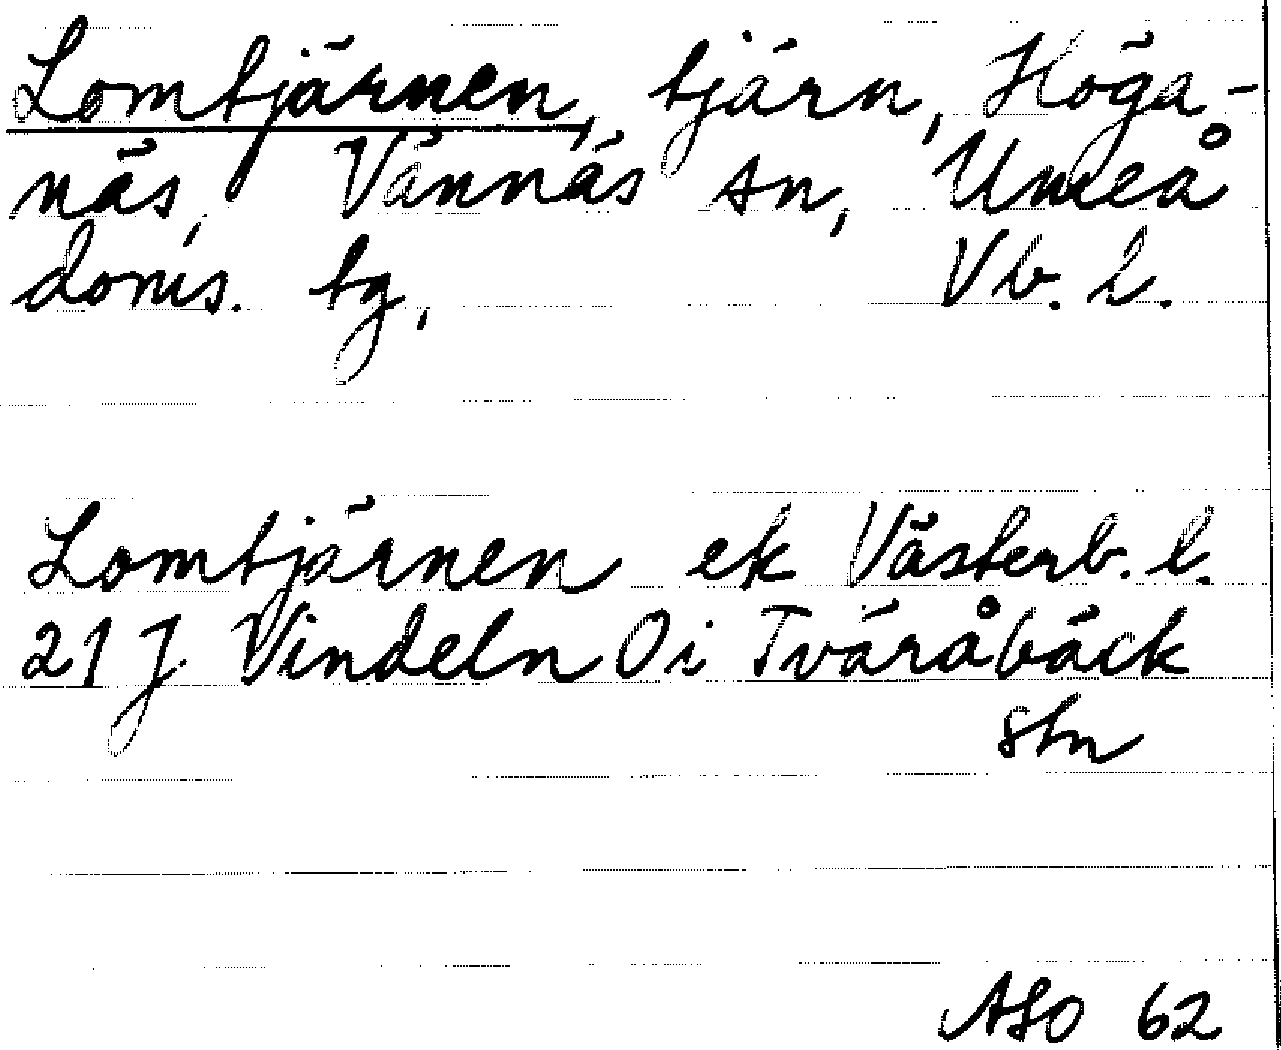 Lomtjärnen, tjärn, Höga-
näs, Vännäs sn, Umeå
doms. tg, Vb. l.
Lomtjärnen ek Västerb. l.
21 J. Vindeln Oi Tväråbäck
stn
ASO 62